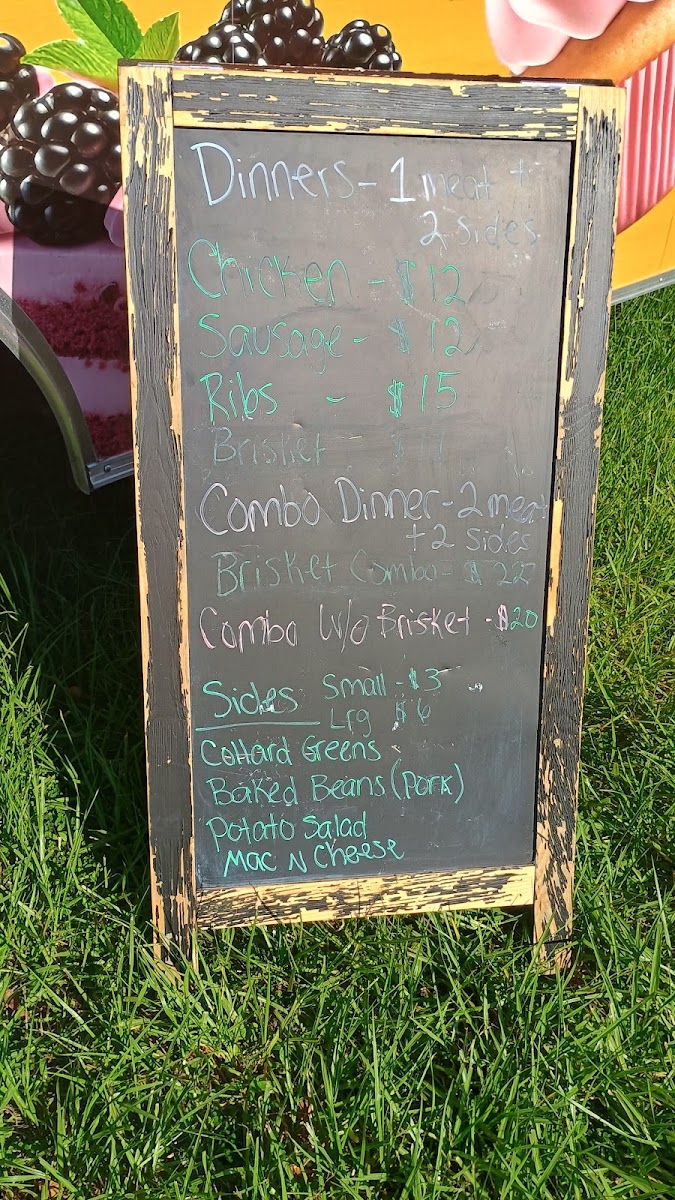 Dinners - 1 meat +
2 sides
Chicken - $12
Sausage - $12
Ribs - $15
Brisket
Combo Dinner - 2 meat
+ 2 sides
Brisket Combo - $22
Combo w/o Brisket - $20
Sides Small - $3
Lrg $6
Collard Greens
Baked Beans (Pork)
Potato Salad
Mac N Cheese